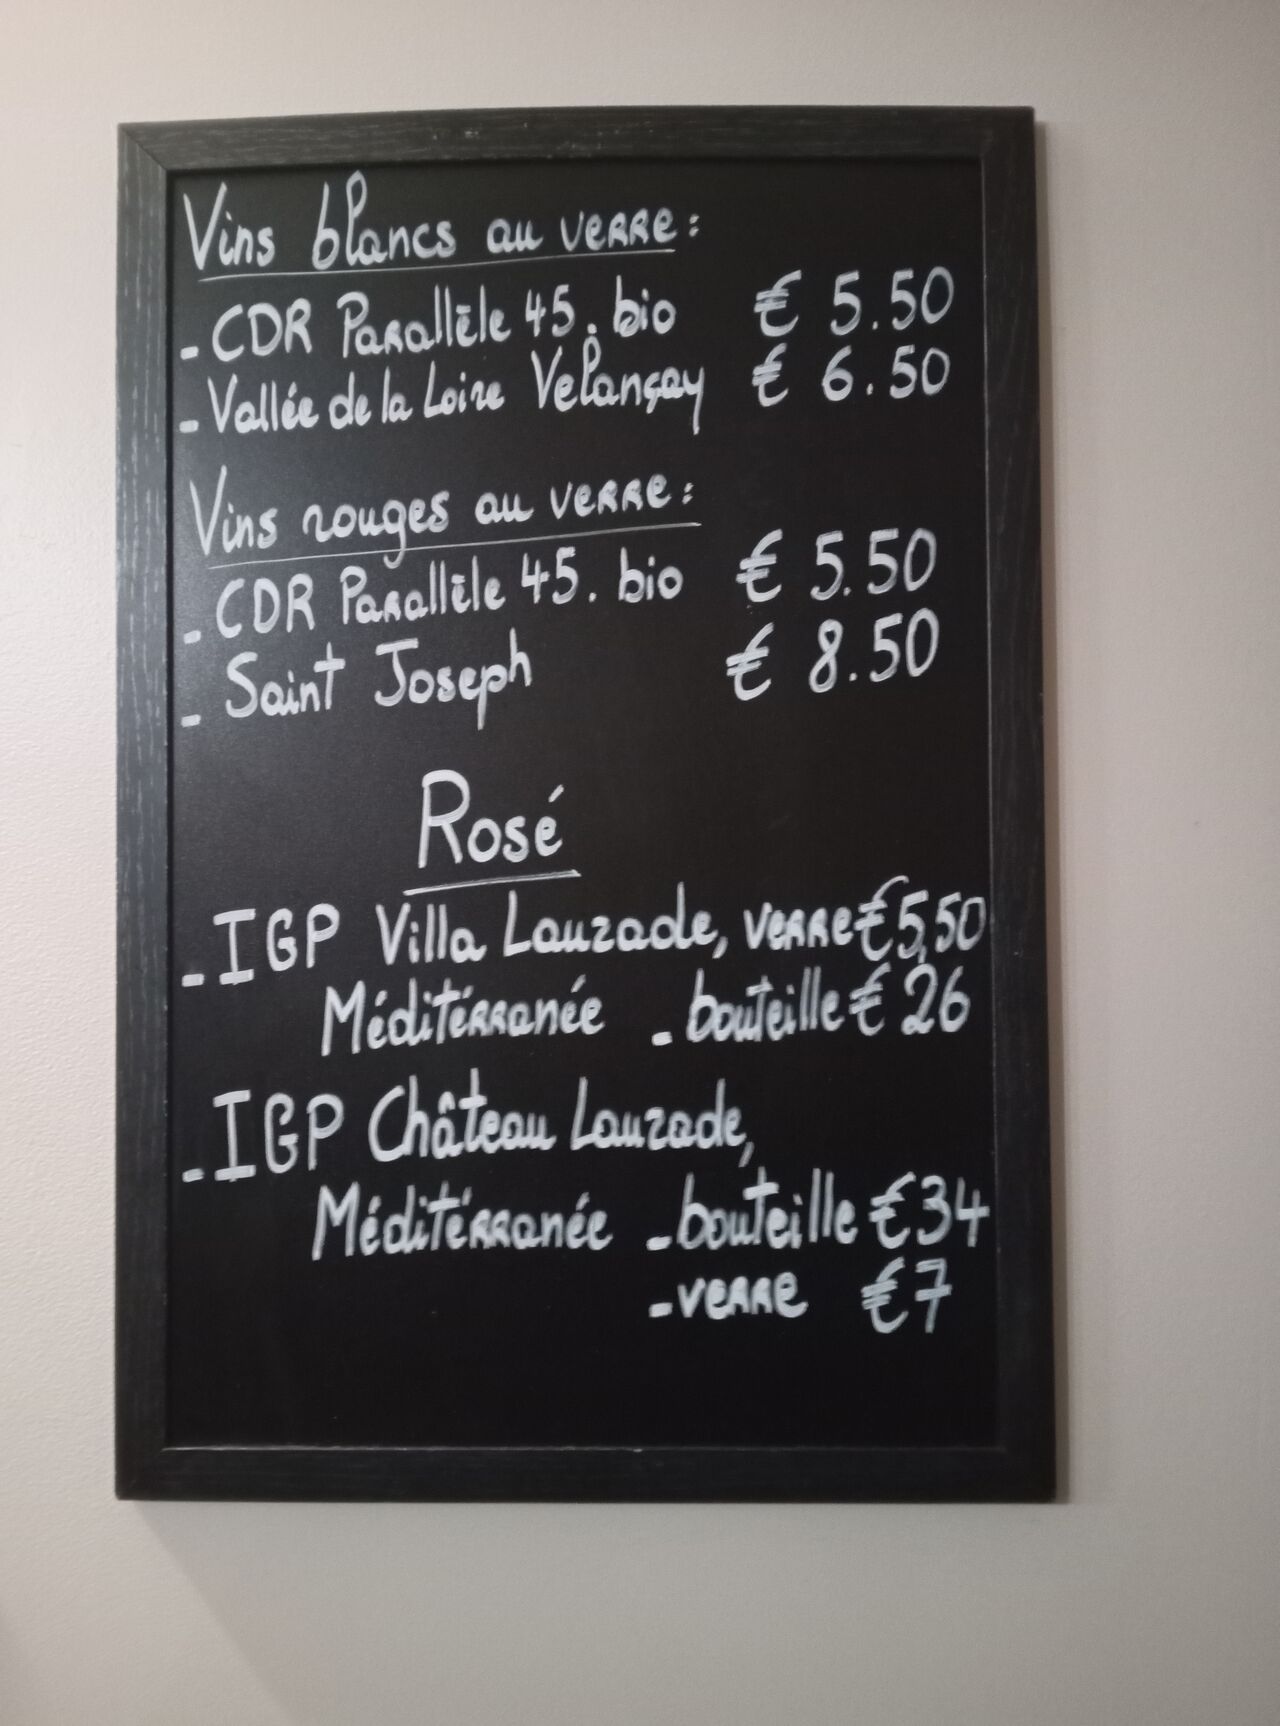 Vins blancs au verre :
- CDR Parallèle 45. bio € 5.50
- Vallée de la Loire Velançay € 6.50
Vins rouges au verre :
- CDR Parallèle 45. bio € 5.50
- Saint Joseph € 8.50
Rosé
- IGP Villa Lauzade, verre € 5,50
Méditérranée - bouteille € 26
- IGP Château Lauzade,
Méditérranée - bouteille € 34
- verre € 7